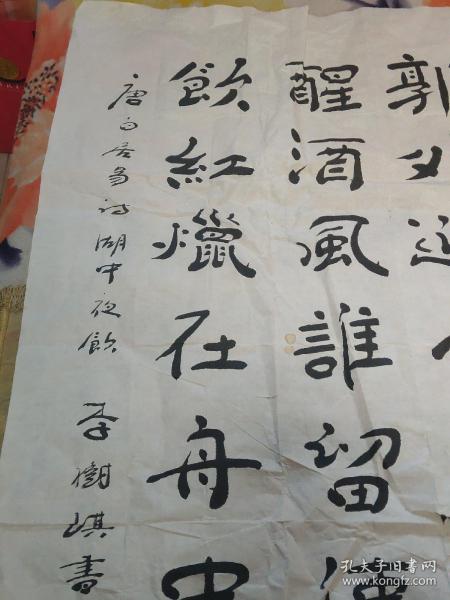 郭外迎人月
醒酒風誰留使
飲紅爉在舟中
唐白居易詩湖中夜飲 李樹琪書
孔夫子旧书网
www.kongfz.com